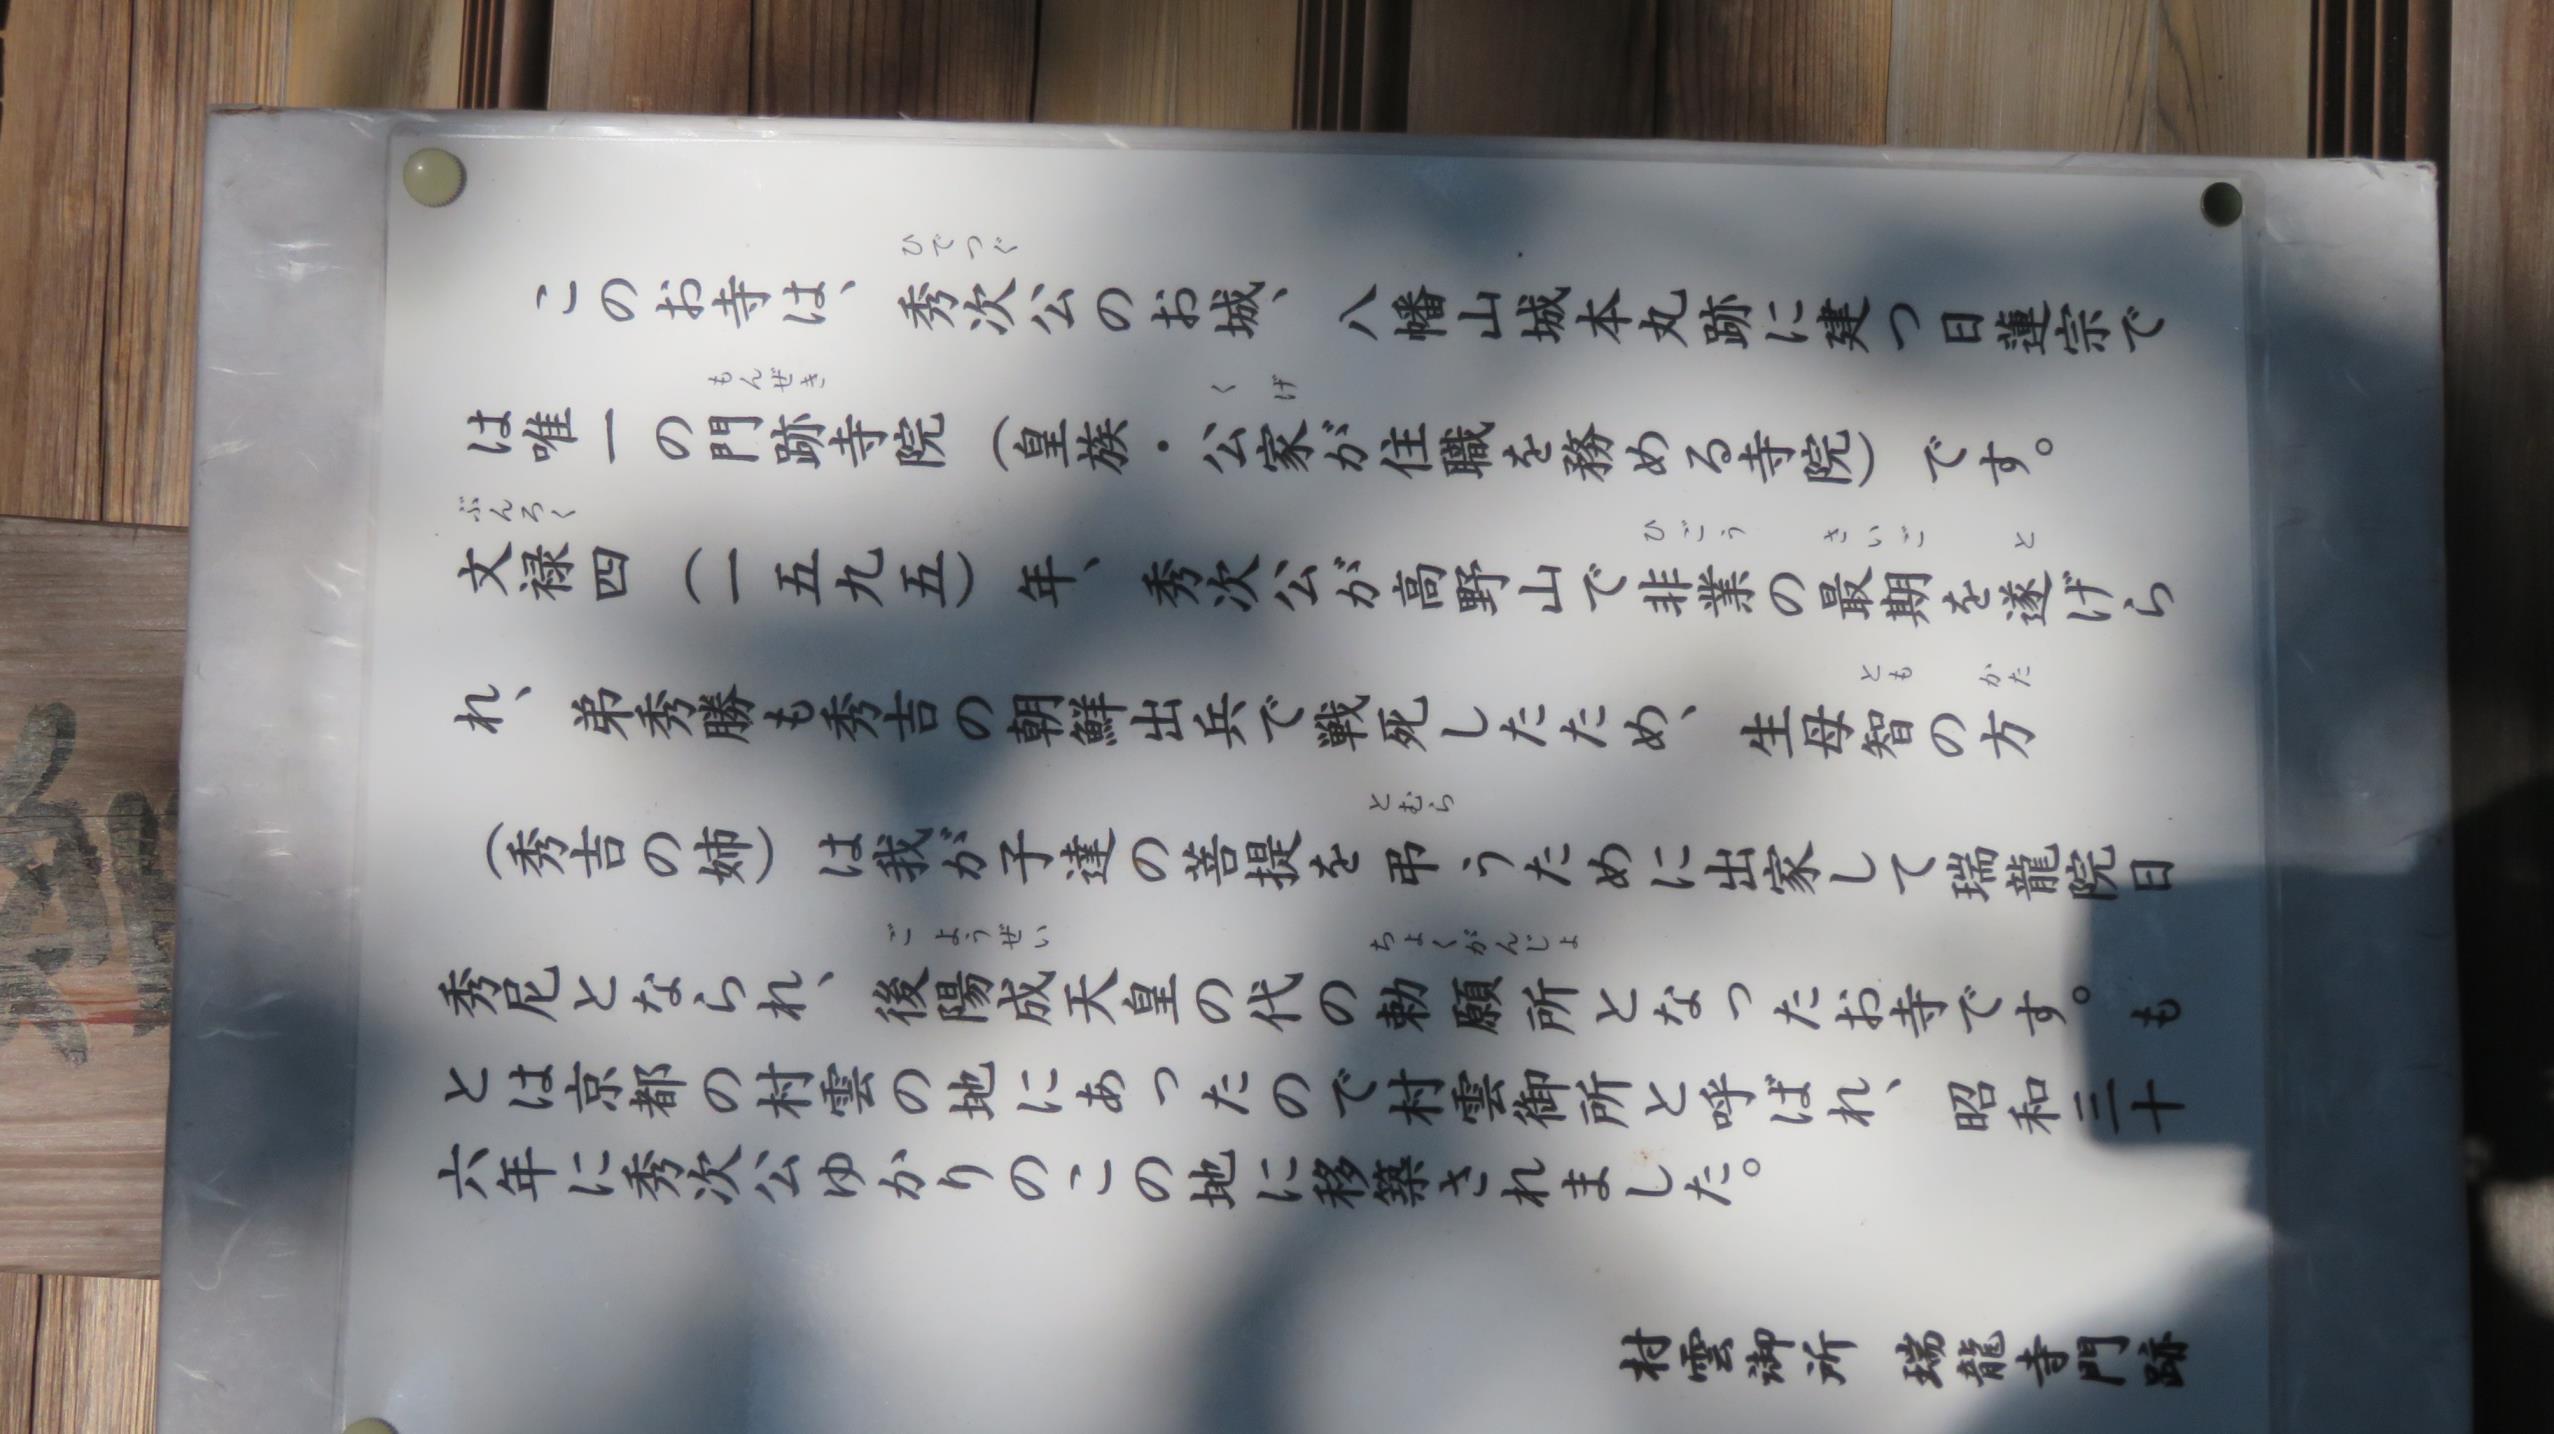 このお寺は、秀次公のお城、八幡山城本丸跡に建つ日蓮宗で
は唯一の門跡寺院（皇族・公家が住職を務める寺院）です。
文禄四（一五九五）年、秀次公が高野山で非業の最期を遂げら
れ、弟秀勝も秀吉の朝鮮出兵で戦死したため、生母智の方
（秀吉の姉）は我が子達の菩提を弔うために出家して瑞龍院日
秀尼となられ、後陽成天皇の代の勅願所となったお寺です。も
とは京都の村雲の地にあったので村雲御所と呼ばれ、昭和三十
六年に秀次公ゆかりのこの地に移築されました。
村雲御所 瑞龍寺門跡